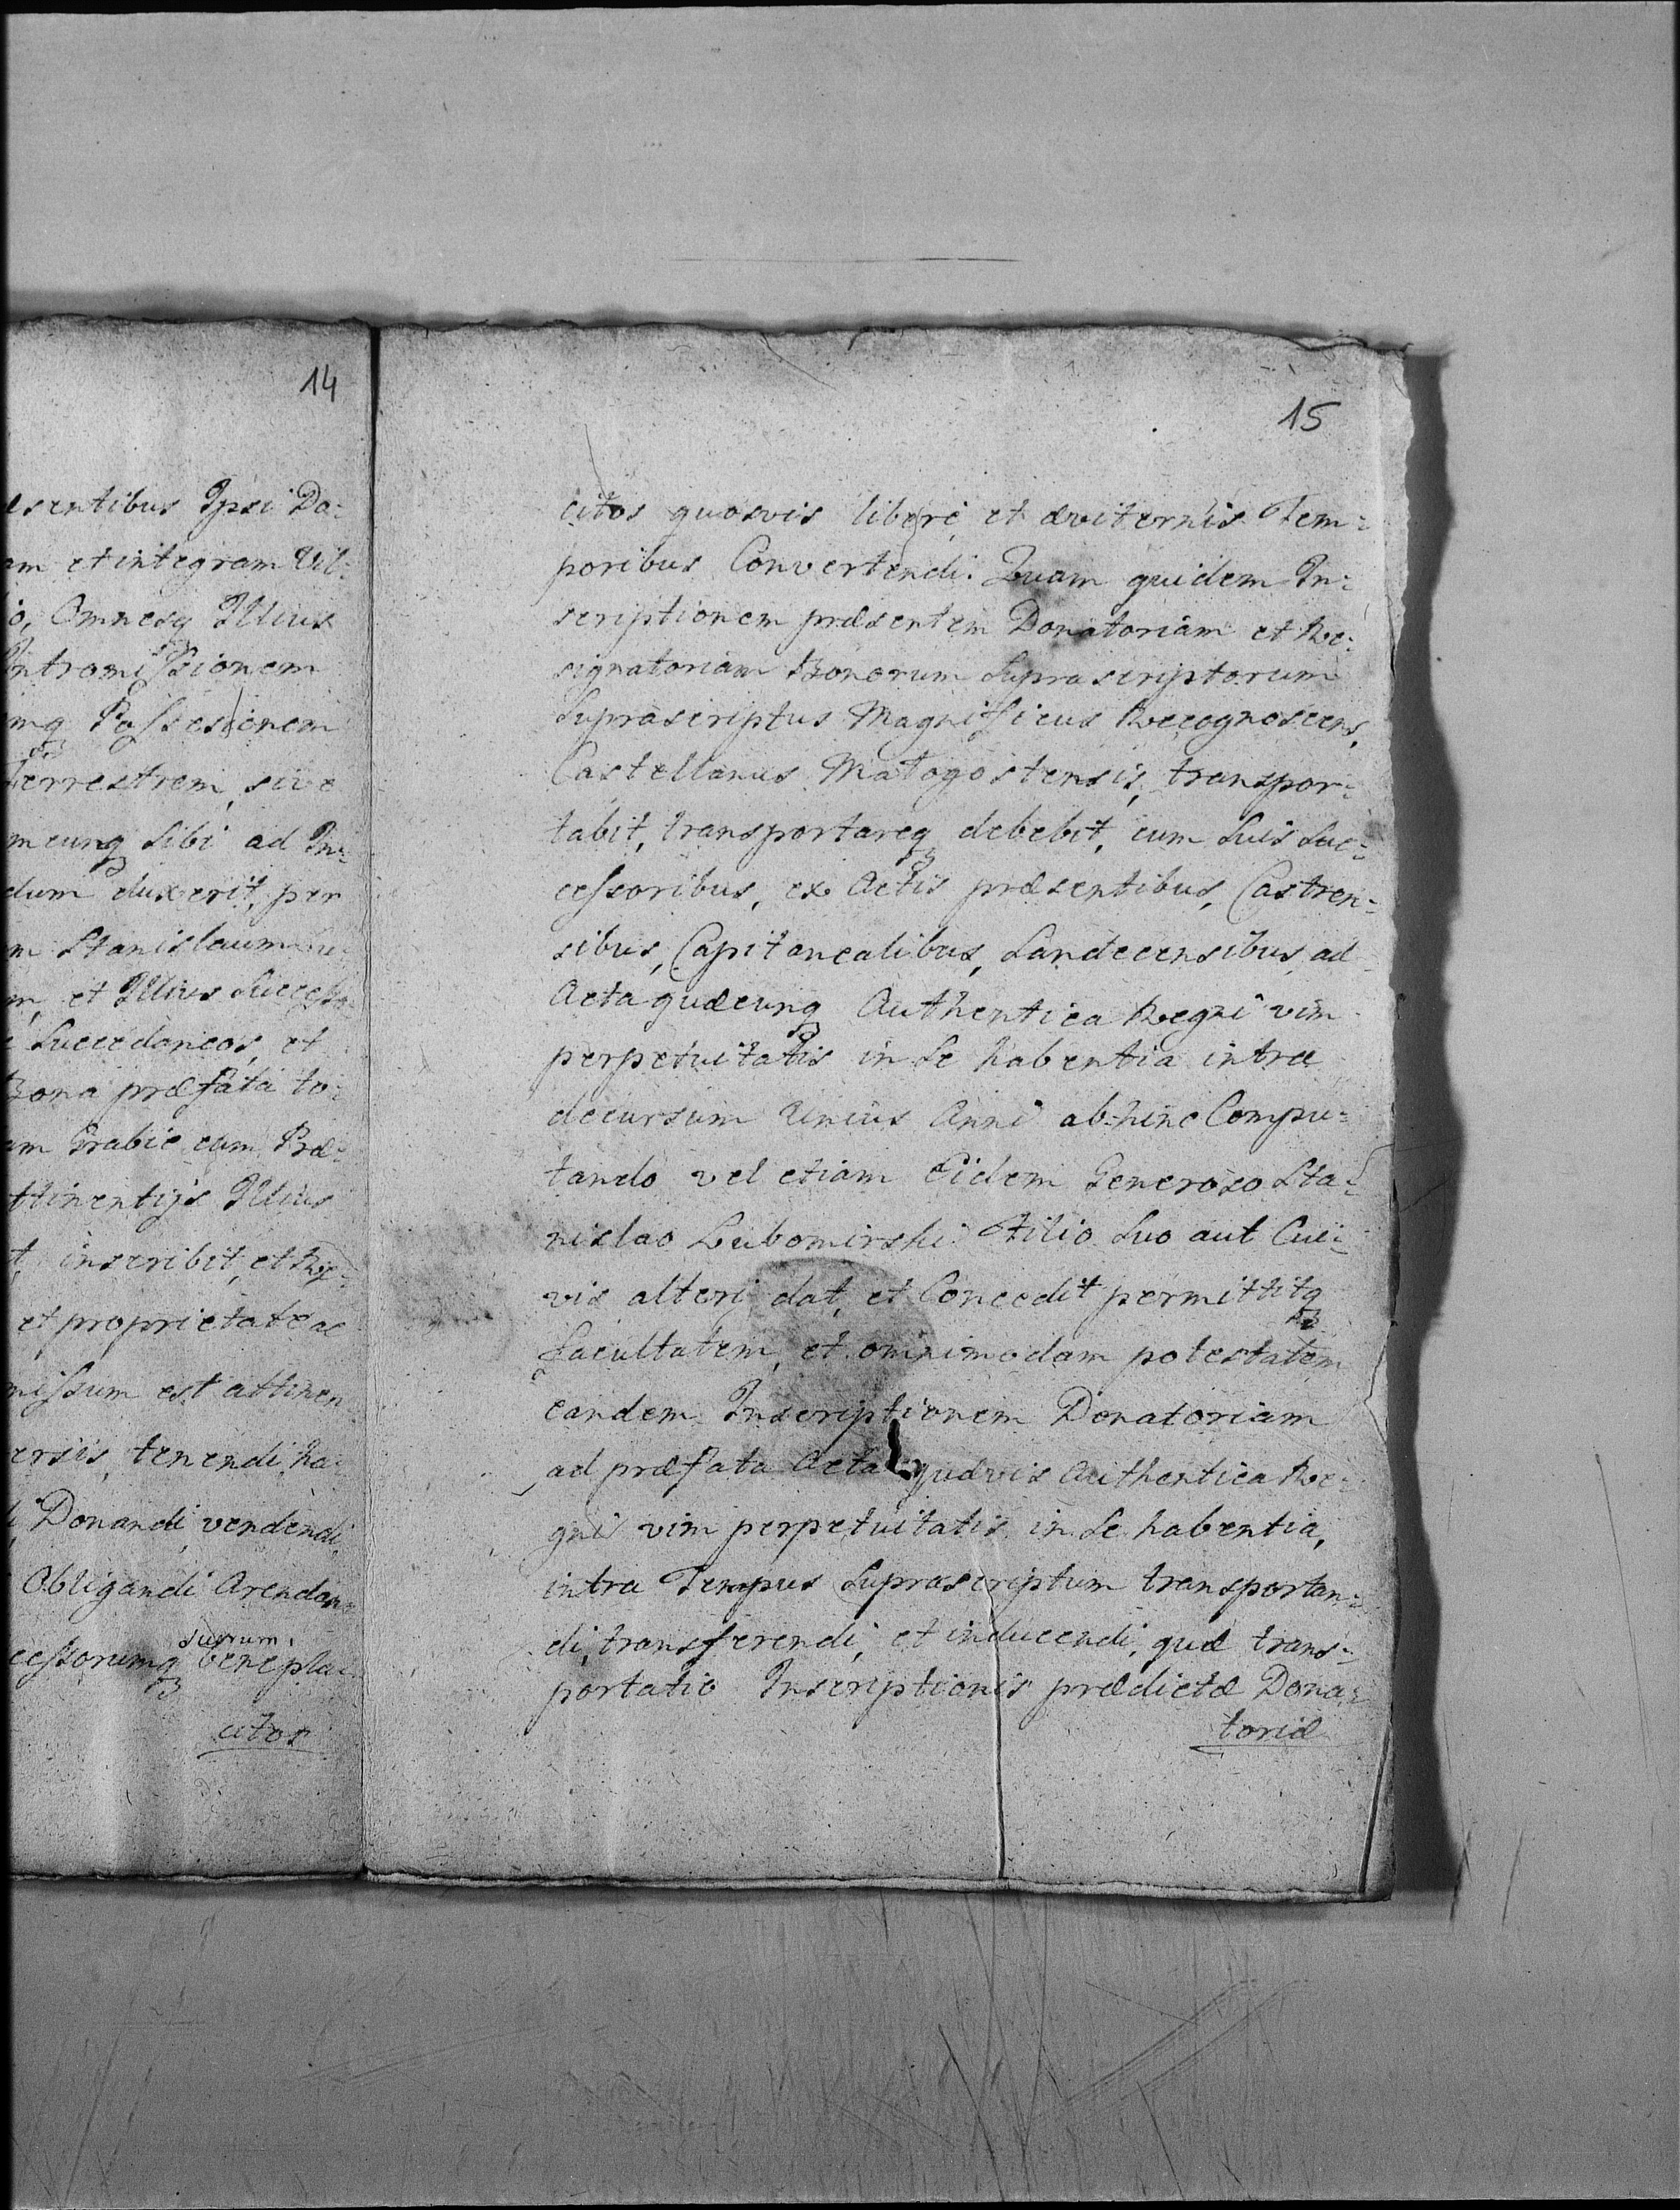 14
esentibus Ipsi Do:
am et integram Vil:
io, Omnesq Illius
Intromissionem
mq Possessionem
Terrestrem, sive
mcunq Sibi ad In:
dum duxerit, per
m Stanislaum Lu:
m, et Illius Successo
Succedaneos, et
Bona præfata to:
am Grabie cum Præ:
ttinentijs Illius
t, inscribit, et Re:
et proprietate ac
missum est attinen
ersis, tenendi, ha:
Donandi, vendendi,
Obligandi Arendan:
suorum,
cessorumq benepla:
citos
15
citos quosvis liberè, et æviternis Tem:
poribus Convertendi. Quam quidem In:
scriptionem præsentem Donatoriam et Re:
signatoriam Bonorum Suprascriptorum
Suprascriptus Magnificus Recognoscens,
Castellanus Małogostensis, transpor:
tabit, transportareq debebit, cum Suis Suc:
cessoribus, ex Actis præsentibus, Castren:
sibus, Capitanealibus, Sandecensibus, ad
Acta quæcunq Authentica Regni vim
perpetuitatis in Se habentia intra
decursum Unius Anni ab-hinc Compu:
tando vel etiam Eidem Generoso Sta:
nislao Lubomirski Filio Suo aut Cui:
vis alteri dat, et Concedit permittitq
facultatem, et omnimodam potestatem
eandem Inscriptionem Donatoriam
ad præfata Acta quævis Authentica Re:
gni vim perpetuitatis in Se habentia,
intra Tempus Suprascriptum transportan:
di, transferendi, et inducendi, quæ trans:
portatio Inscriptionis prædictæ Dona:
toriæ